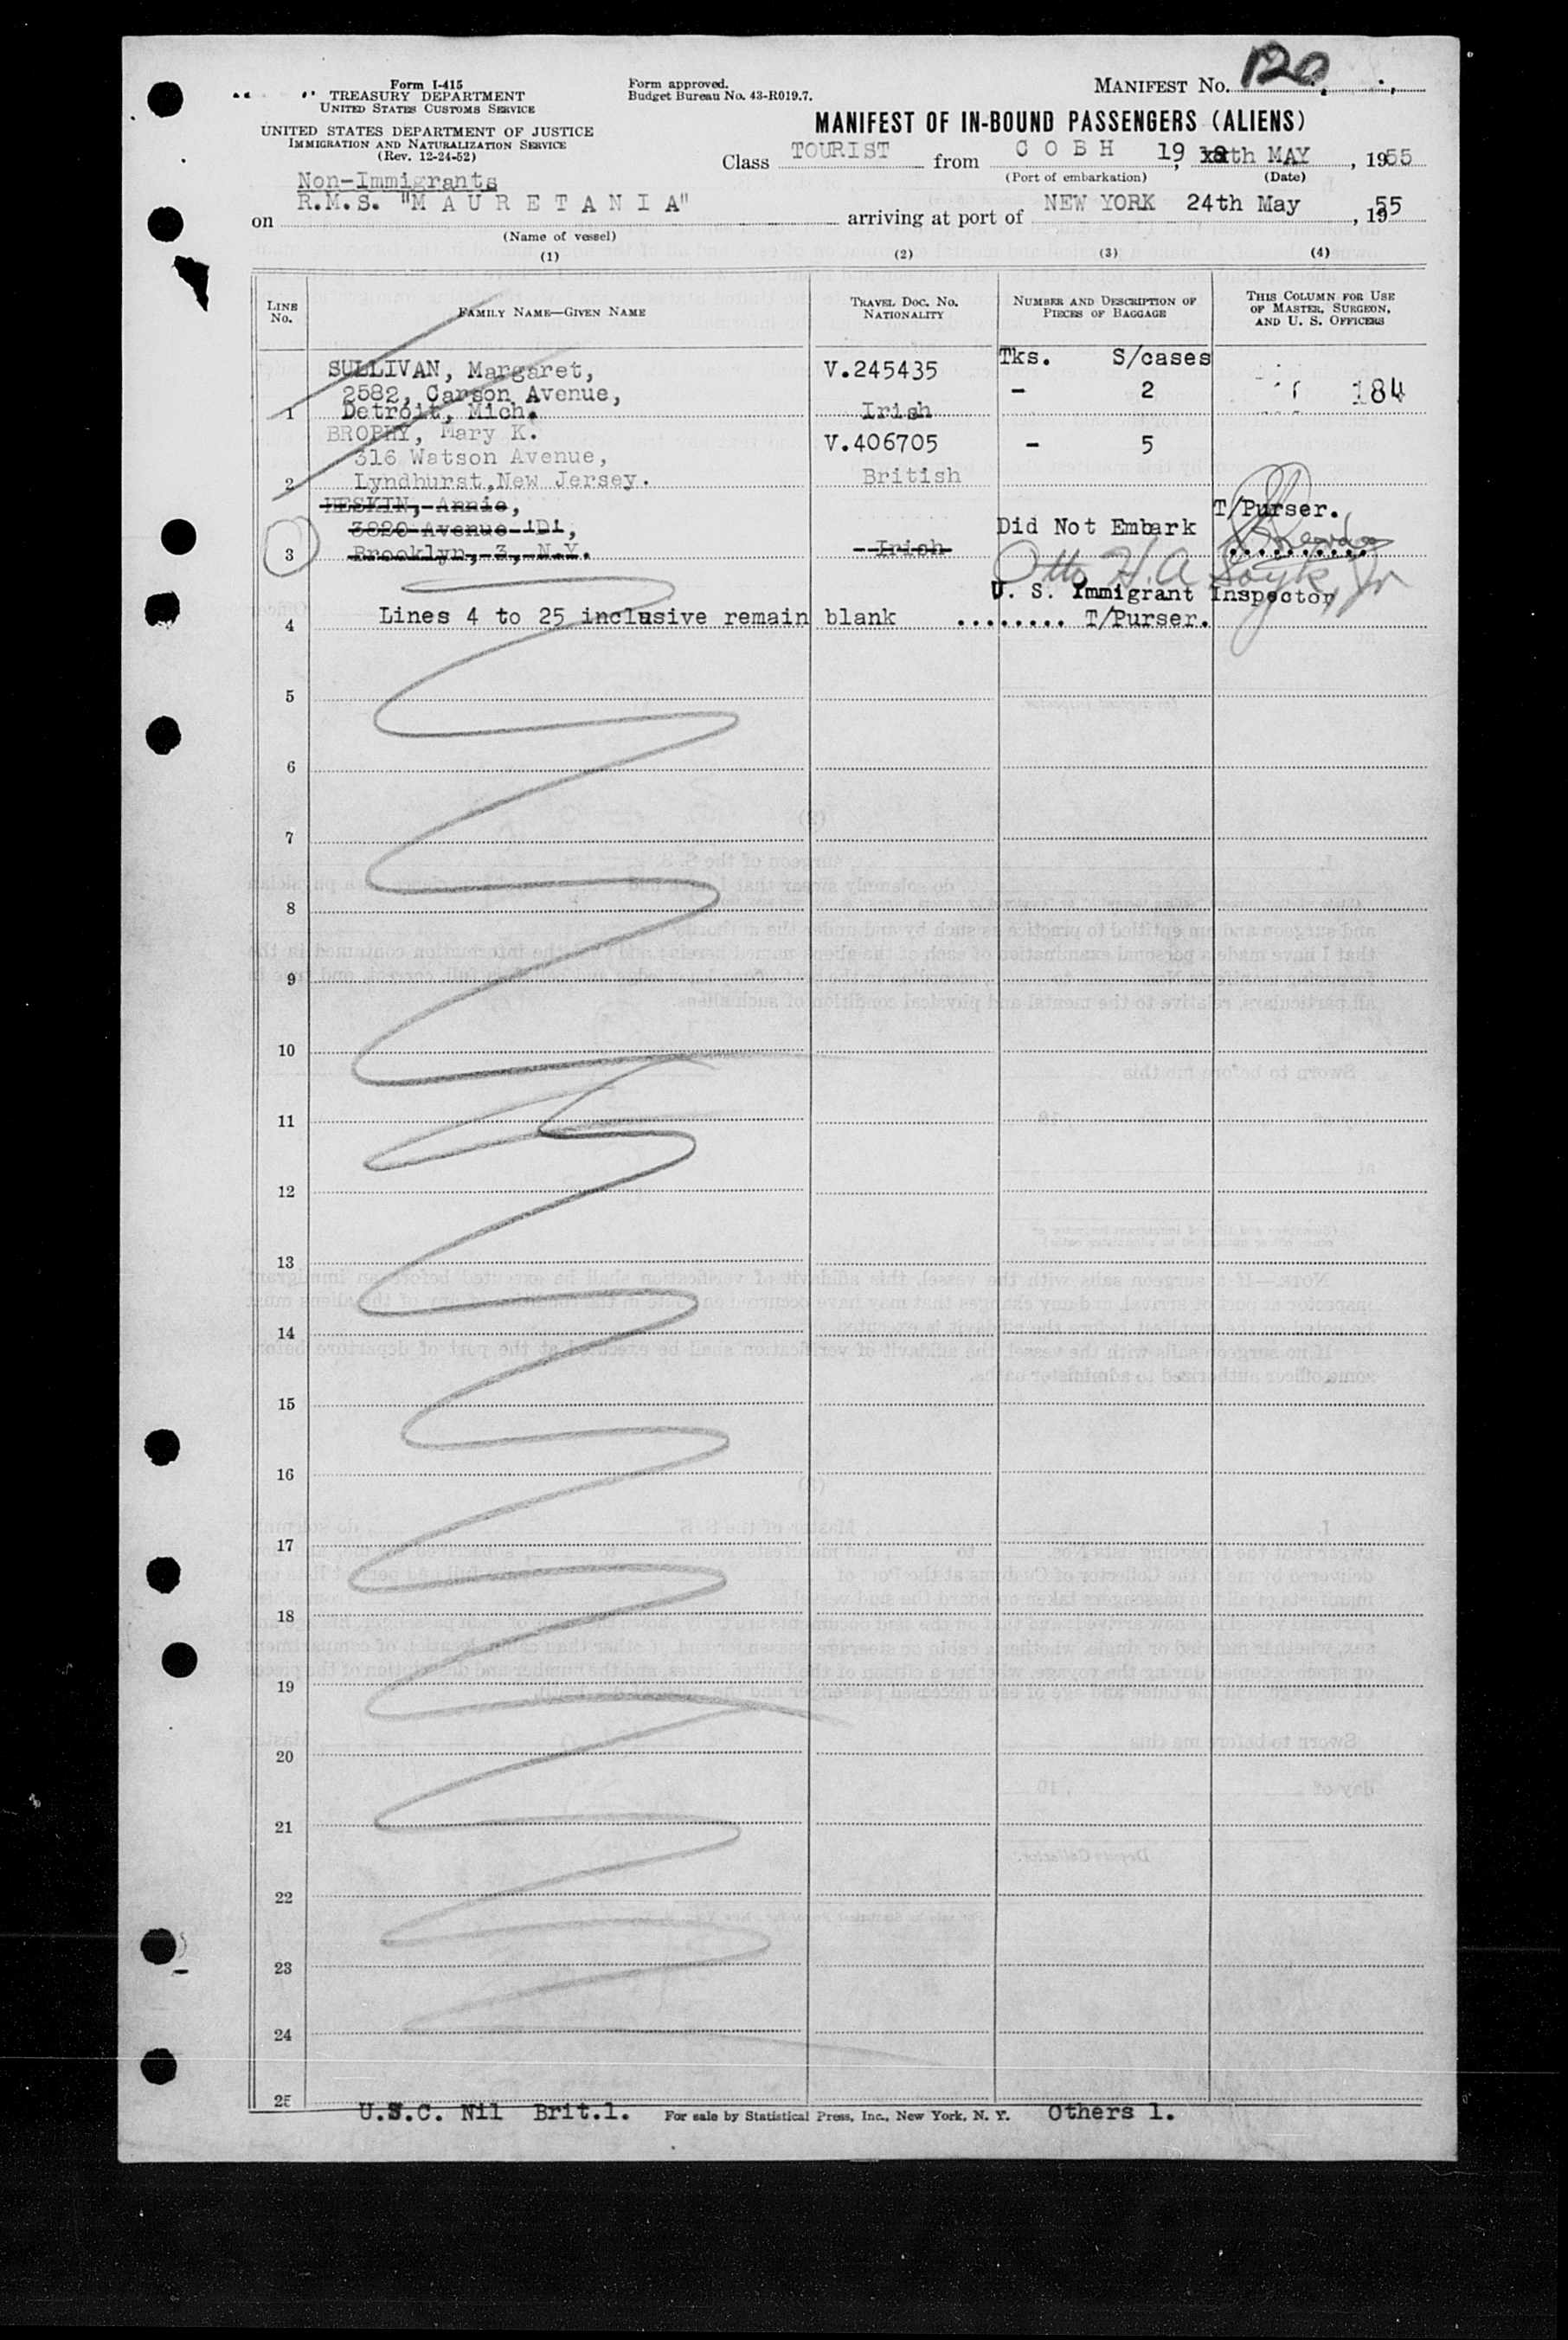 Form I-415
TREASURY DEPARTMENT
UNITED STATES CUSTOMS SERVICE
UNITED STATES DEPARTMENT OF JUSTICE
IMMIGRATION AND NATURALIZATION SERVICE
(Rev. 12-24-52)
Form approved.
Budget Bureau No. 43-R019.7.
MANIFEST NO. 120
MANIFEST OF IN-BOUND PASSENGERS (ALIENS)
Class TOURIST from COBH 19th MAY, 1955
(Port of embarkation) (Date)
Non-Immigrants
on R.M.S. "MAURETANIA" arriving at port of NEW YORK 24th May, 1955
(Name of vessel)
(1) (2) (3) (4)
LINE No. FAMILY NAME—GIVEN NAME TRAVEL DOC. NO. NATIONALITY NUMBER AND DESCRIPTION OF PIECES OF BAGGAGE THIS COLUMN FOR USE OF MASTER, SURGEON, AND U. S. OFFICERS
Tks. S/cases
SULLIVAN, Margaret, V.245435
2582, Carson Avenue, - 2 184
1 Detroit, Mich. Irish
BROPHY, Mary K. V.406705 - 5
316 Watson Avenue,
2 Lyndhurst, New Jersey. British
HESKIN, Annie, T/Purser.
3820 Avenue 'D', Did Not Embark
3 Brooklyn, 3, N.Y. Irish
Otto H.A.
U. S. Immigrant Inspector
4 Lines 4 to 25 inclusive remain blank ........ T/Purser.
5
6
7
8
9
10
11
12
13
14
15
16
17
18
19
20
21
22
23
24
25
U.S.C. Nil Brit.1. For sale by Statistical Press, Inc., New York, N. Y. Others 1.